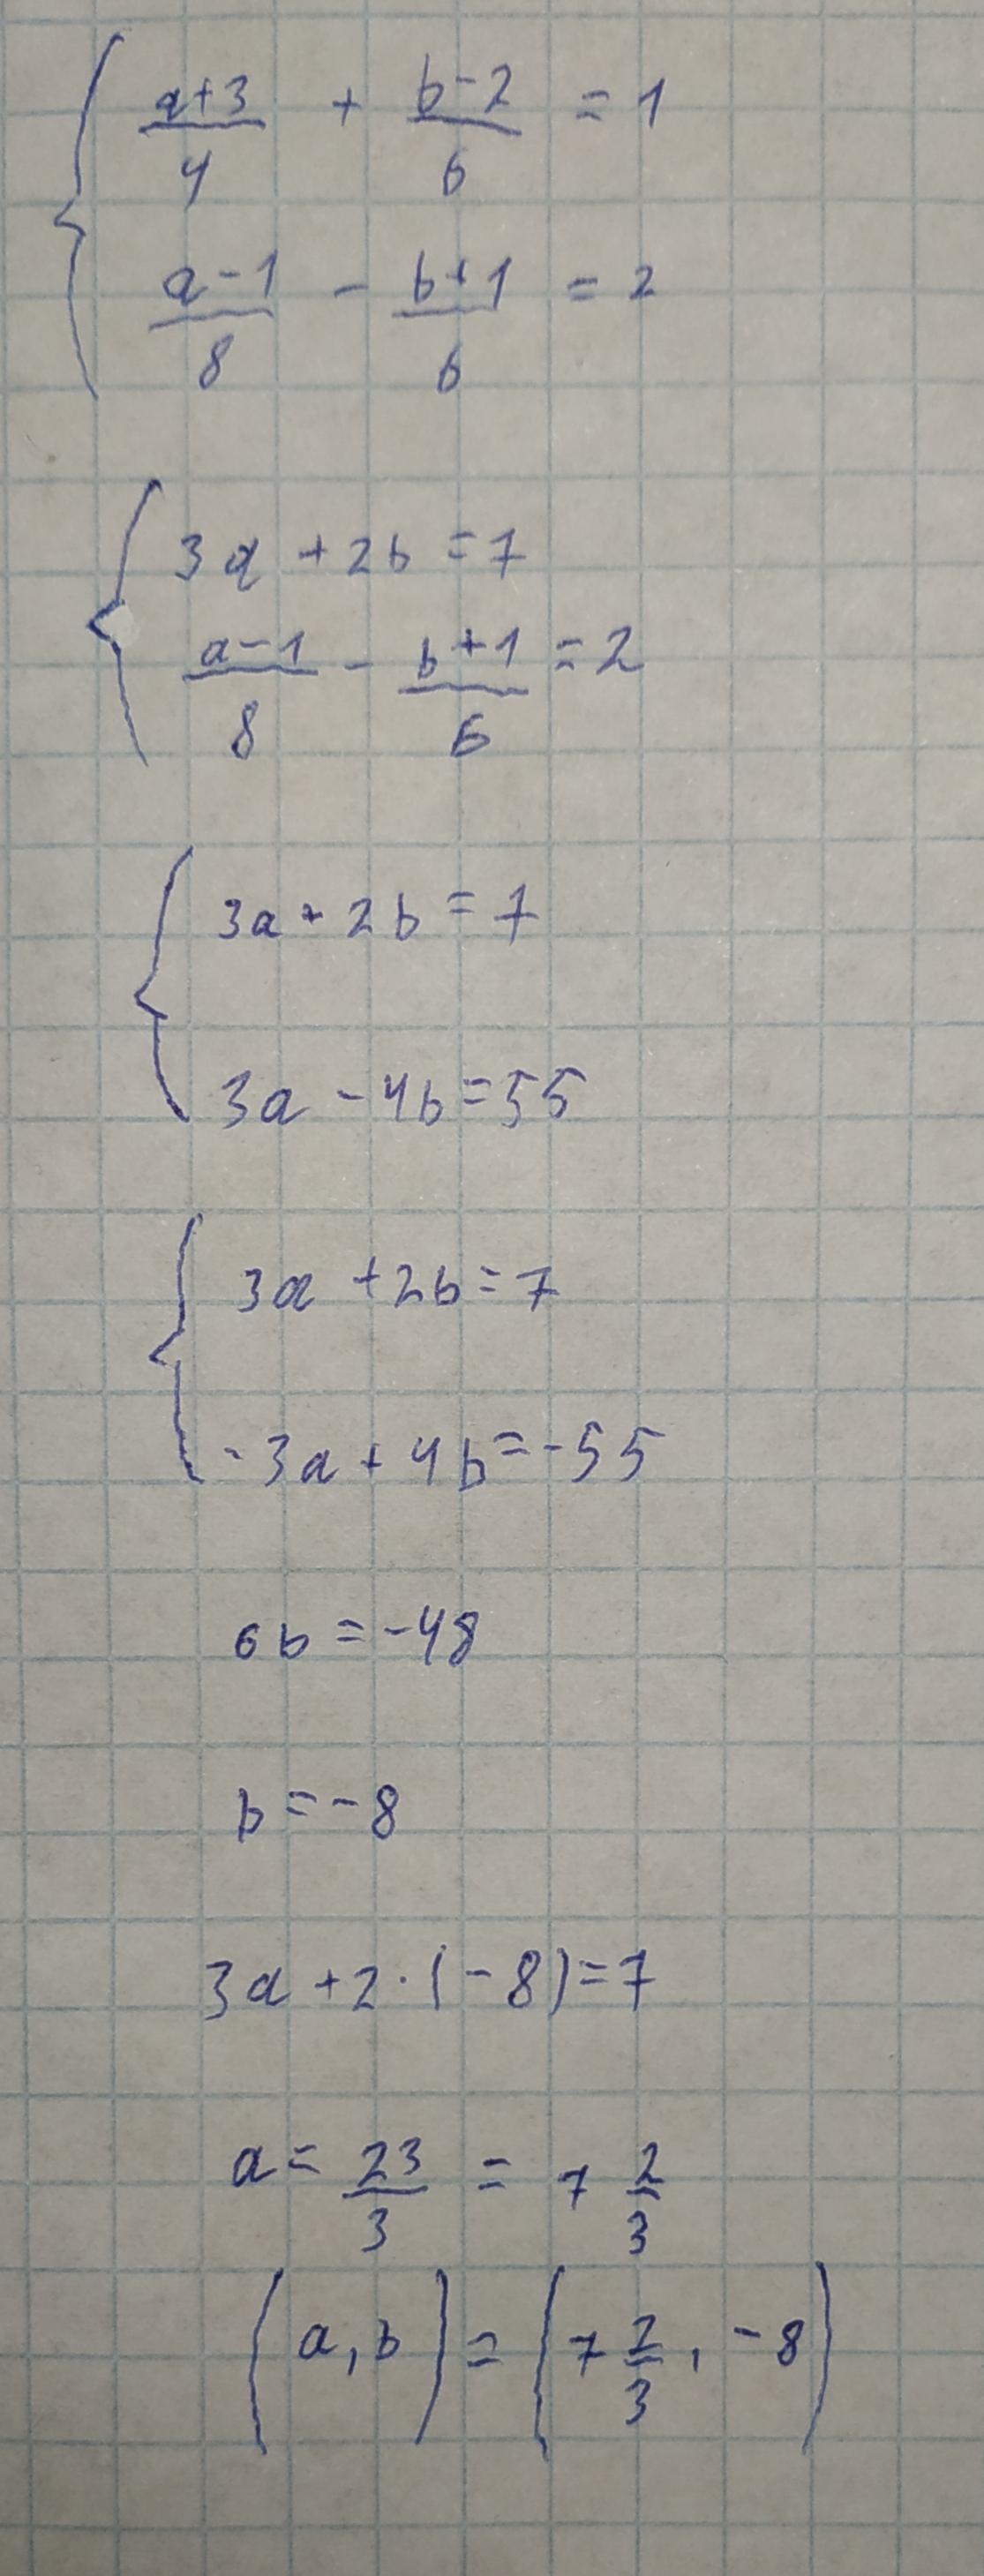 { (a+3)/4 + (b-2)/6 = 1
(a-1)/8 - (b+1)/6 = 2
{ 3a + 2b = 7
(a-1)/8 - (b+1)/6 = 2
{ 3a + 2b = 7
3a - 4b = 55
{ 3a + 2b = 7
-3a + 4b = -55
6b = -48
b = -8
3a + 2·(-8) = 7
a = 23/3 = 7 2/3
(a, b) = (7 2/3, -8)